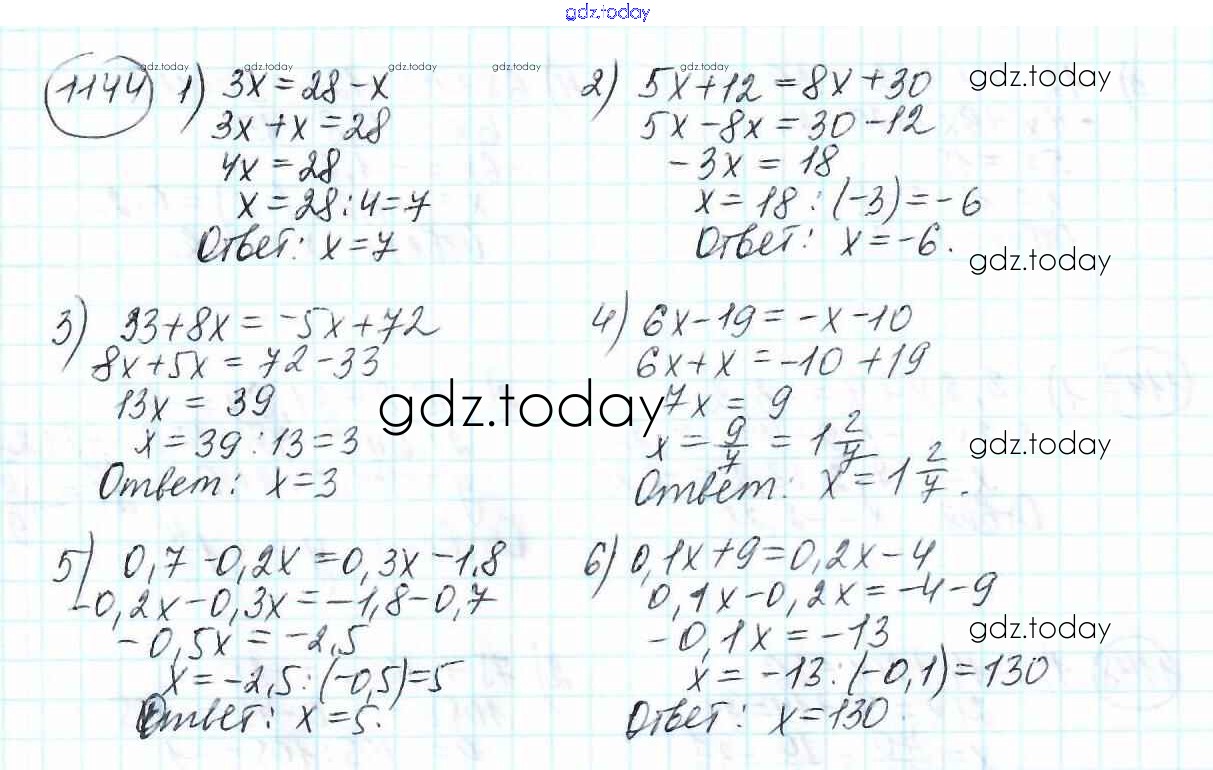 gdz.today
gdz.today gdz.today gdz.today gdz.today gdz.today gdz.today
1144 1) 3x=28-x
3x+x=28
4x=28
x=28:4=7
Ответ: x=7
2) 5x+12=8x+30
gdz.today
5x-8x=30-12
-3x=18
x=18:(-3)=-6
Ответ: x=-6.
gdz.today
3) 33+8x=-5x+72
8x+5x=72-33
13x=39
x=39:13=3
Ответ: x=3
gdz.today
4) 6x-19=-x-10
6x+x=-10+19
7x=9
x=9/7=1 2/7
gdz.today
Ответ: x=1 2/7.
5) 0,7-0,2x=0,3x-1,8
-0,2x-0,3x=-1,8-0,7
-0,5x=-2,5
x=-2,5:(-0,5)=5
Ответ: x=5.
6) 0,1x+9=0,2x-4
0,1x-0,2x=-4-9
-0,1x=-13
gdz.today
x=-13:(-0,1)=130
Ответ: x=130.